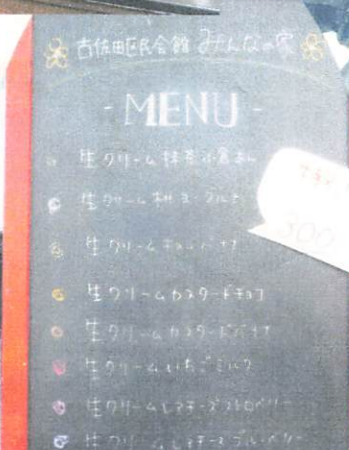 古佐田区民会館 みんなの家
- MENU -
生クリーム抹茶小倉あん
生クリーム桃ヨーグルト
生クリームチョコバナナ
生クリームカスタードチョコ
生クリームカスタードバナナ
生クリームいちごミルク
生クリームレアチーズストロベリー
生クリームレアチーズブルーベリー
300